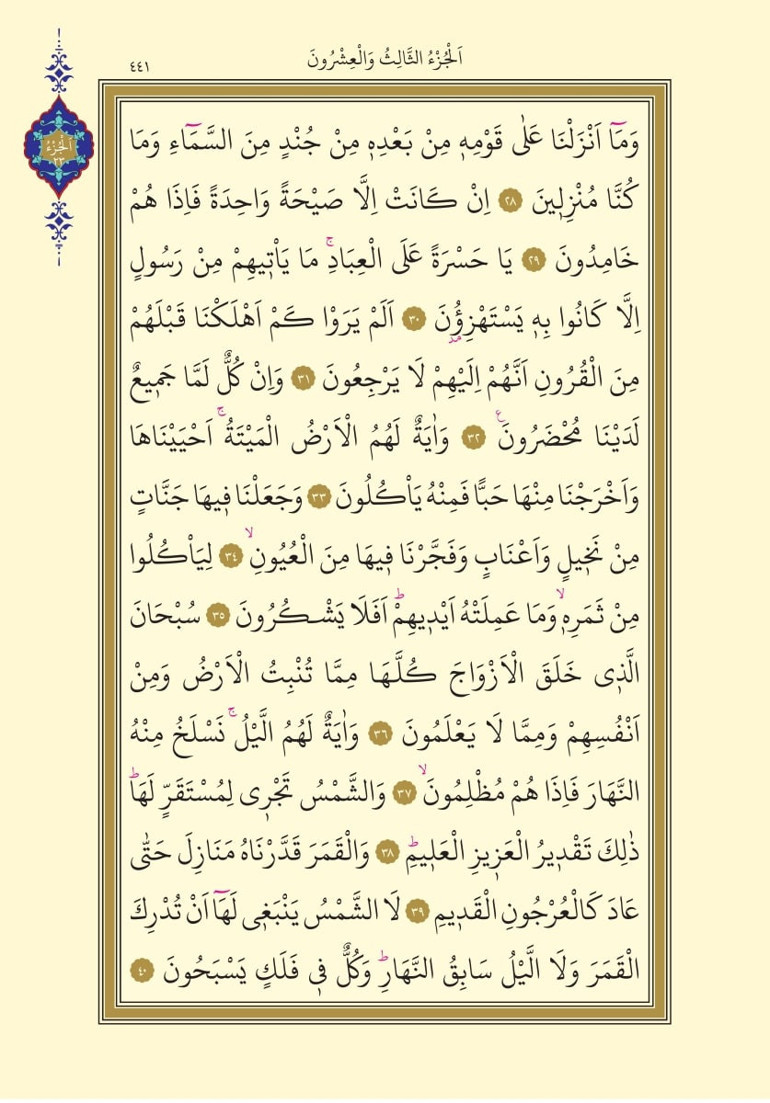 اَلْجُزْءُ الثَّالِثُ وَالْعِشْرُونَ
٤٤١
اَلْجُزْءُ
٢٣
وَمَٓا اَنْزَلْنَا عَلٰى قَوْمِه۪ مِنْ بَعْدِه۪ مِنْ جُنْدٍ مِنَ السَّمَٓاءِ وَمَا
كُنَّا مُنْزِل۪ينَ ﴿٢٨﴾ اِنْ كَانَتْ اِلَّا صَيْحَةً وَاحِدَةً فَاِذَا هُمْ
خَامِدُونَ ﴿٢٩﴾ يَا حَسْرَةً عَلَى الْعِبَادِۚ مَا يَأْت۪يهِمْ مِنْ رَسُولٍ
اِلَّا كَانُوا بِه۪ يَسْتَهْزِؤُ۫نَ ﴿٣٠﴾ اَلَمْ يَرَوْا كَمْ اَهْلَكْنَا قَبْلَهُمْ
مِنَ الْقُرُونِ اَنَّهُمْ اِلَيْهِمْ لَا يَرْجِعُونَ ﴿٣١﴾ وَاِنْ كُلٌّ لَمَّا جَم۪يعٌ
لَدَيْنَا مُحْضَرُونَ۟ ﴿٣٢﴾ وَاٰيَةٌ لَهُمُ الْاَرْضُ الْمَيْتَةُۚ اَحْيَيْنَاهَا
وَاَخْرَجْنَا مِنْهَا حَبًّا فَمِنْهُ يَأْكُلُونَ ﴿٣٣﴾ وَجَعَلْنَا ف۪يهَا جَنَّاتٍ
مِنْ نَخ۪يلٍ وَاَعْنَابٍ وَفَجَّرْنَا ف۪يهَا مِنَ الْعُيُونِۙ ﴿٣٤﴾ لِيَأْكُلُوا
مِنْ ثَمَرِه۪ۙ وَمَا عَمِلَتْهُ اَيْد۪يهِمْۜ اَفَلَا يَشْكُرُونَ ﴿٣٥﴾ سُبْحَانَ
الَّذ۪ى خَلَقَ الْاَزْوَاجَ كُلَّهَا مِمَّا تُنْبِتُ الْاَرْضُ وَمِنْ
اَنْفُسِهِمْ وَمِمَّا لَا يَعْلَمُونَ ﴿٣٦﴾ وَاٰيَةٌ لَهُمُ الَّيْلُۚ نَسْلَخُ مِنْهُ
النَّهَارَ فَاِذَا هُمْ مُظْلِمُونَۙ ﴿٣٧﴾ وَالشَّمْسُ تَجْر۪ى لِمُسْتَقَرٍّ لَهَاۜ
ذٰلِكَ تَقْد۪يرُ الْعَز۪يزِ الْعَل۪يمِۜ ﴿٣٨﴾ وَالْقَمَرَ قَدَّرْنَاهُ مَنَازِلَ حَتّٰى
عَادَ كَالْعُرْجُونِ الْقَد۪يمِ ﴿٣٩﴾ لَا الشَّمْسُ يَنْبَغ۪ى لَهَٓا اَنْ تُدْرِكَ
الْقَمَرَ وَلَا الَّيْلُ سَابِقُ النَّهَارِۜ وَكُلٌّ ف۪ى فَلَكٍ يَسْبَحُونَ ﴿٤٠﴾